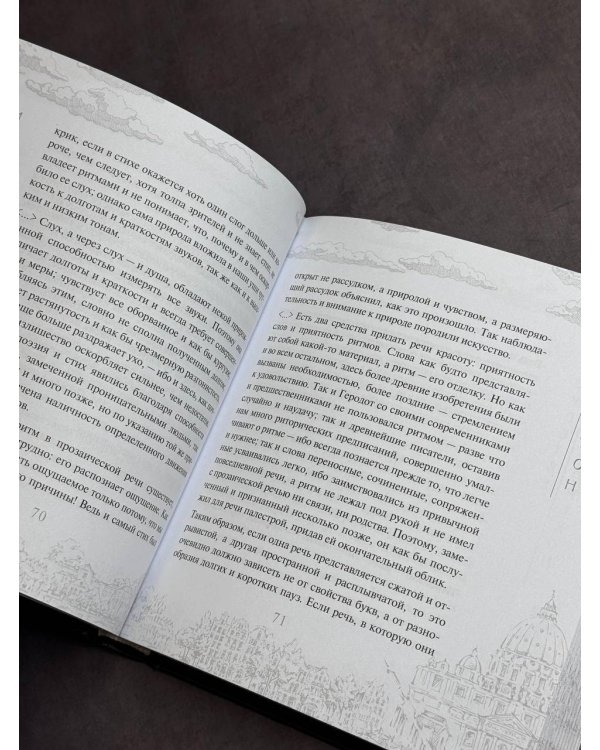 крик, если в стихе окажется хоть один слог дольше или ко-
роче, чем следует, хотя толпа зрителей и не знает стоп, не
владеет ритмами и не понимает, что, почему и в чем оскор-
било ее слух; однако сама природа вложила в наши уши чут-
кость к долготам и краткостям звуков, так же как и к высо-
ким и низким тонам.
<...> Слух, а через слух — и душа, обладают некой природ-
нной способностью измерять все звуки. Поэтому он
личает долготы и краткости и всегда требует совершен-
и меры; чувствует все оборванное и как бы
бляясь этим, словно не сполна полученным долгом,
ет растянутость и как бы чрезмерную разгонистость,
ще больше раздражает ухо, — ибо и здесь, как
злишество оскорбляет сильнее, чем недостаток.
оэзия и стих явились благодаря способности
замеченной проницательными людьми,
и много позже, но по указанию той же при-
ечена наличность определенного движения
ов.
ритм в прозаической речи существует,
трудно: его распознает ощущение.
ть ощущаемое только потому, что мы
го причины! Ведь и самый стих был
70
открыт не рассудком, а природой и чувством, а размеряю-
щий рассудок объяснил, как это произошло. Так наблюда-
тельность и внимание к природе породили искусство.
<...> Есть два средства придать речи красоту: приятность
слов и приятность ритмов. Слова как будто представля-
ют собой какой-то материал, а ритм — его отделку. Но как
и во всем остальном, здесь более древние изобретения были
вызваны необходимостью, более поздние — стремлением
к удовольствию. Так и Геродот со своими современниками
и предшественниками не пользовался ритмом — разве что
случайно и наудачу; так и древнейшие писатели, оставив
нам много риторических предписаний, совершенно умал-
чивают о ритме — ибо всегда познается прежде то, что легче
и нужнее; так и слова переносные, сочиненные, сопряжен-
ные усваивались легко, ибо заимствовались из привычной
повседневной речи, а ритм не лежал под рукой и не имел
с прозаической речью ни связи, ни родства. Поэтому, заме-
ченный и признанный несколько позже, он как бы послу-
жил для речи палестрой, придав ей окончательный облик.
Таким образом, если одна речь представляется сжатой и от-
рывистой, а другая пространной и расплывчатой, то это
очевидно должно зависеть не от свойства букв, а от разно-
образия долгих и коротких пауз. Если речь, в которую они
71
О
Н